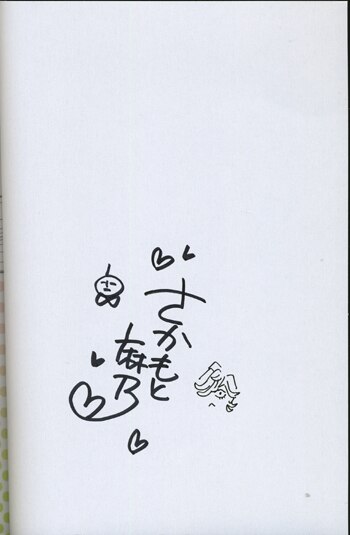 さかもと
麻乃